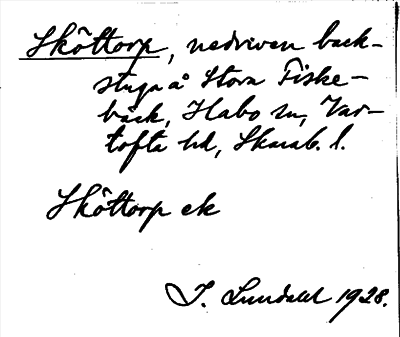 Sköttorp, nedriven back-
stuga å Stora Fiske-
bäck, Habo sn, Var-
tofta hd, Skarab. l.
Sköttorp ek
J. Lundahl 1928.